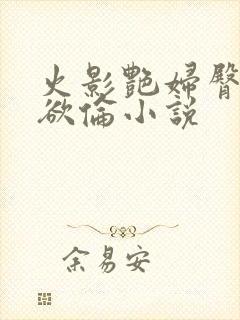 火影艷婦臀
欲倫小說
余易安